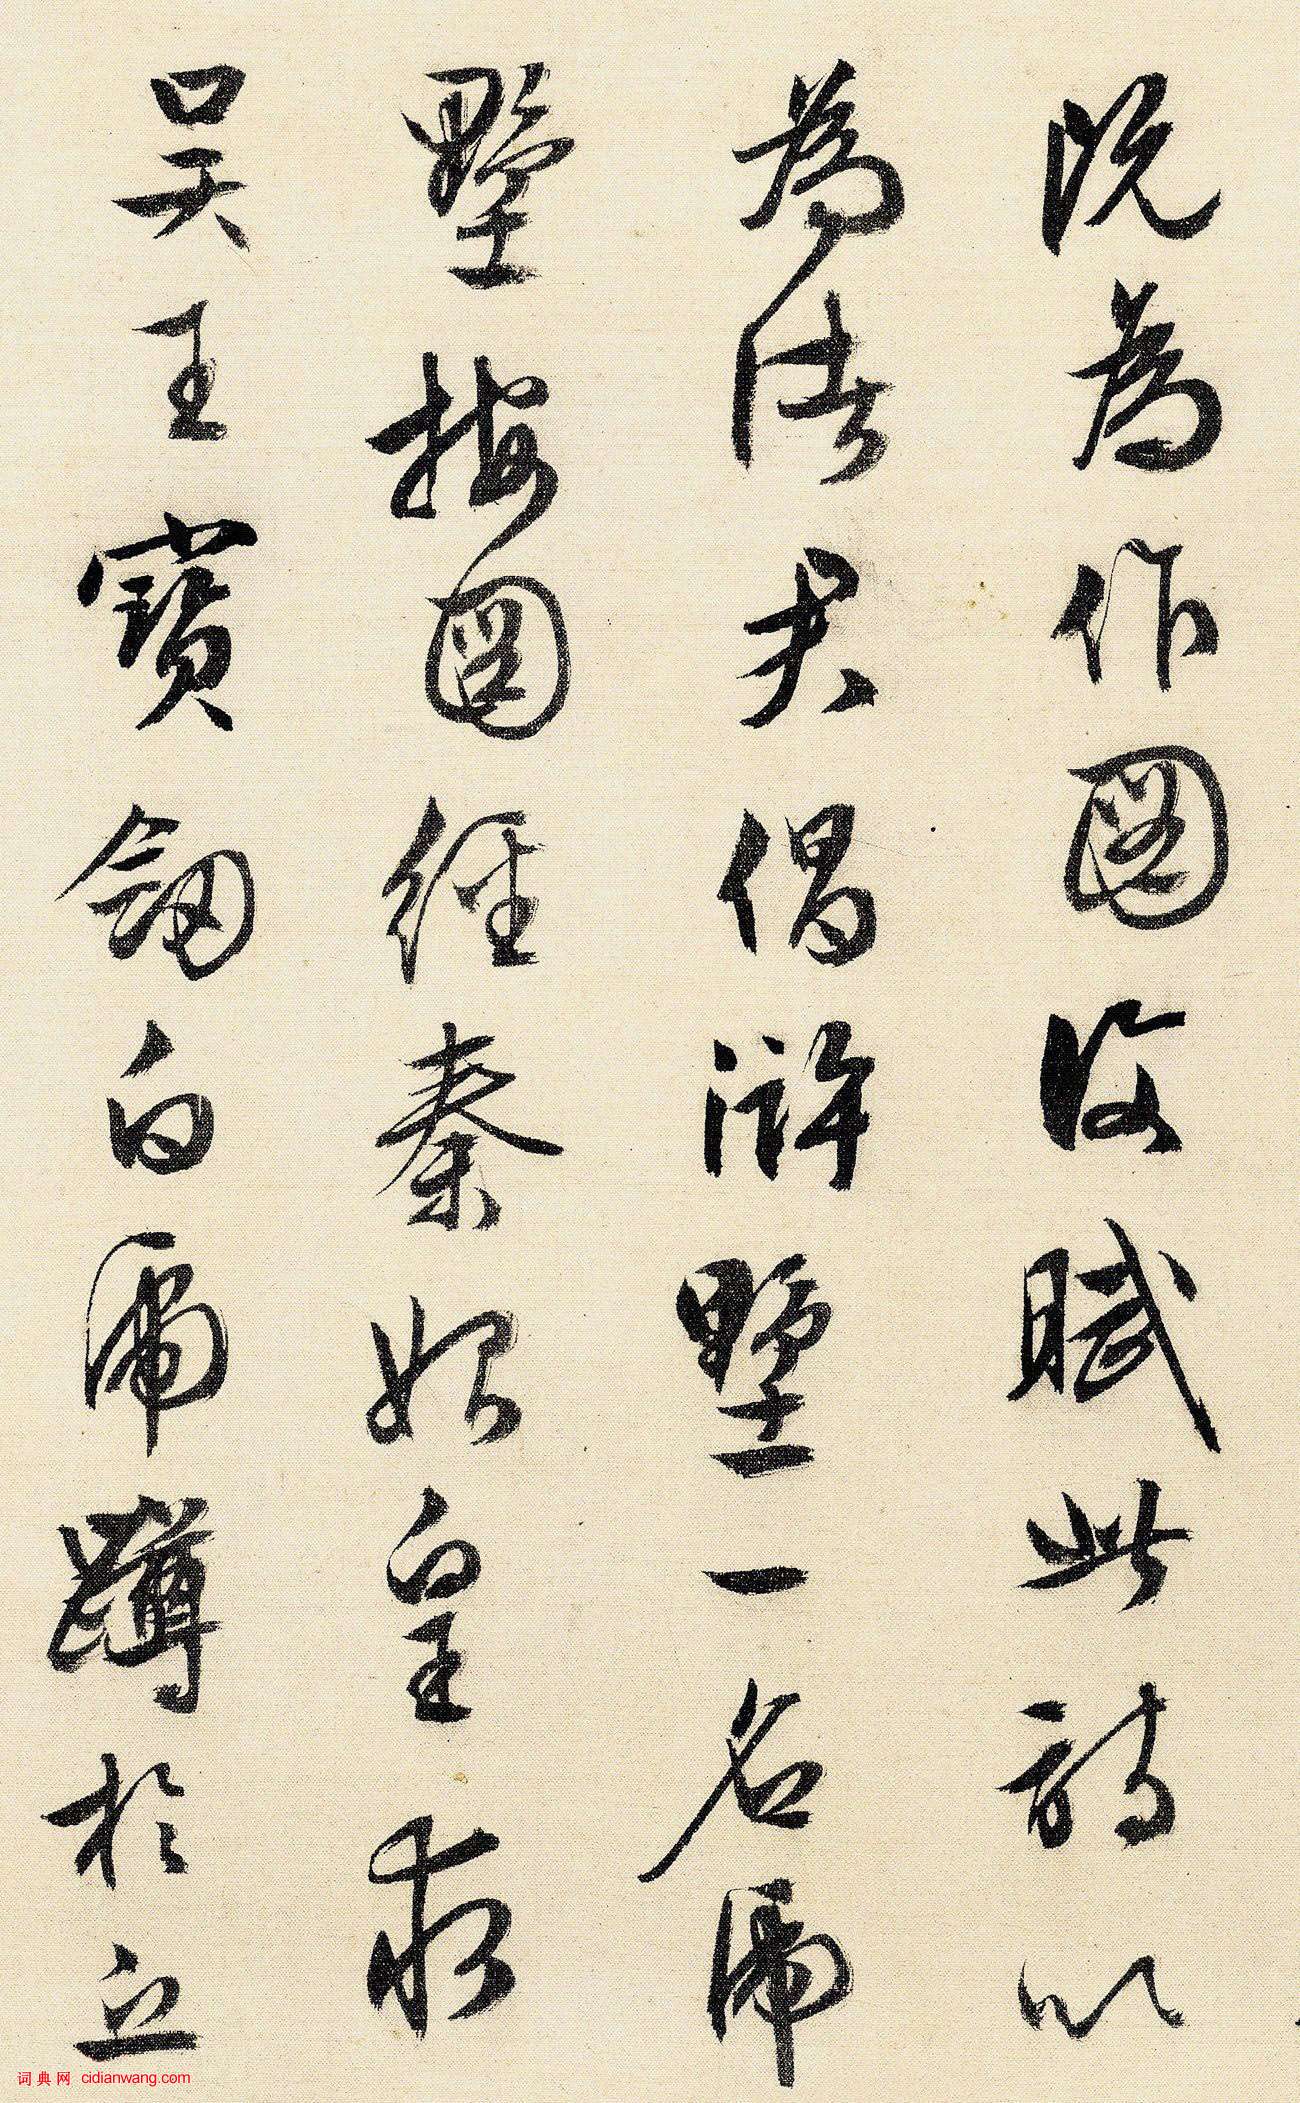 既為作圖復賦此詩以
為諸君倡滸墅一名虎
墅按圖經秦始皇求
吳王寶劍白虎蹲於丘
词典网 cidianwang.com